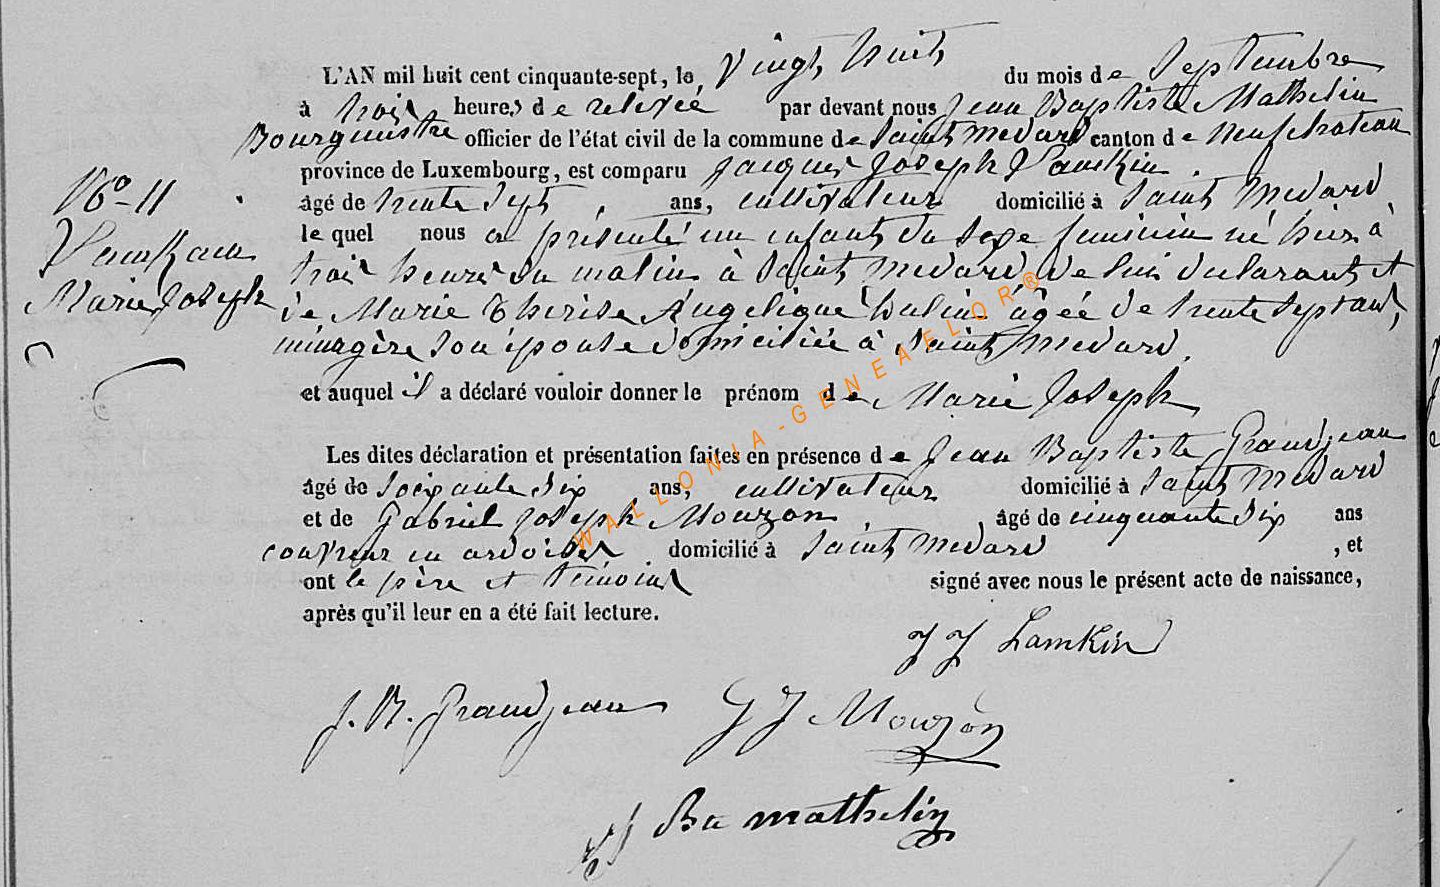 L'AN mil huit cent cinquante-sept, le vingt huit du mois de Septembre
à trois heures de relevée par devant nous Jean Baptiste Mathelin
Bourgmestre officier de l'état civil de la commune de Saint Medard canton de Neufchateau
province de Luxembourg, est comparu Jacques Joseph Lamkin
âgé de trente Sept ans, cultivateur domicilié à Saint Medard
le quel nous a présenté un enfant du sexe feminin né hier à
trois heures du matin à Saint Medard de lui declarant et
de Marie Thérèse Angelique âgée de trente Sept ans,
ménagère son épouse domiciliée à Saint Medard.
et auquel il a déclaré vouloir donner le prénom de Marie Joseph
Les dites déclaration et présentation faites en présence de Jean Baptiste Grandjean
âgé de soixante dix ans, cultivateur domicilié à Saint Medard
et de Gabriel Joseph Mouzon, âgé de cinquante six ans
couvreur en ardoises domicilié à Saint Medard, et
ont le père et témoins signé avec nous le présent acte de naissance,
après qu'il leur en a été fait lecture.
No 11
Marie Joseph
J J Lamkin
J. B. Grandjean G J Mouzon
J Ba mathelin
WALLONIA-GENEAELOR®